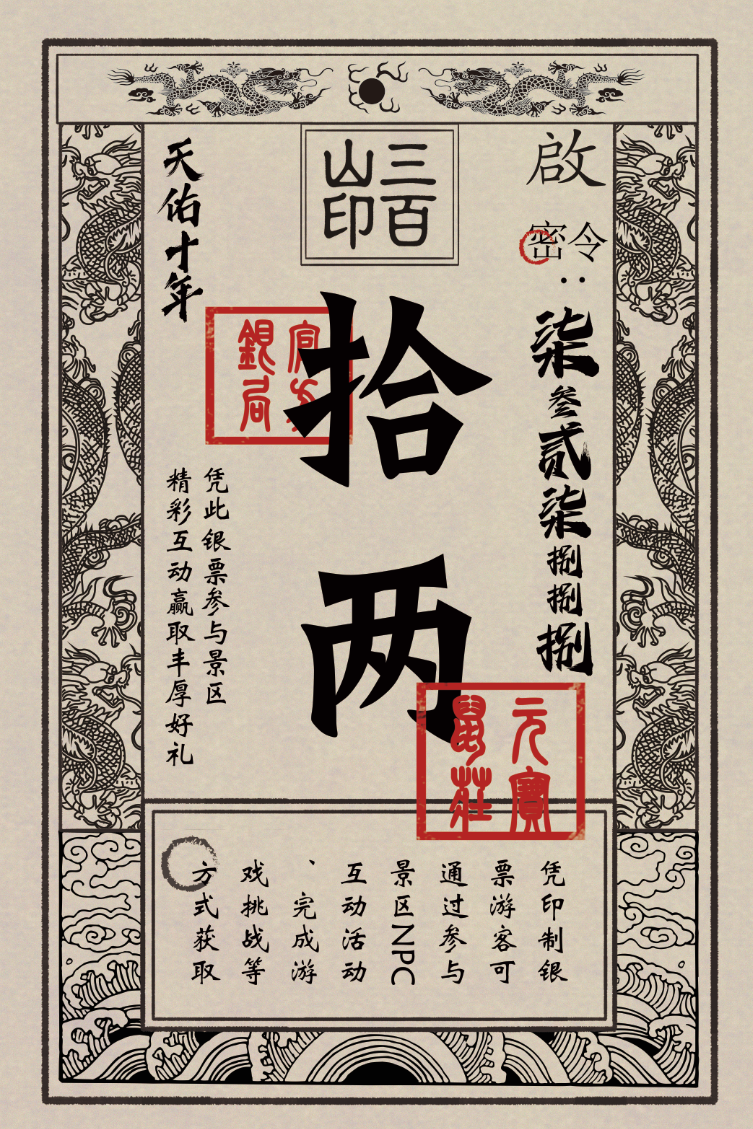 啟
密令：
柒叁贰柒捌捌捌
三百
山印
拾两
銀局
元寶
鼠莊
天佑十年
凭此银票参与景区
精彩互动赢取丰厚好礼
凭印制银
票游客可
通过参与
景区NPC
互动活动
、完成游
戏挑战等
方式获取